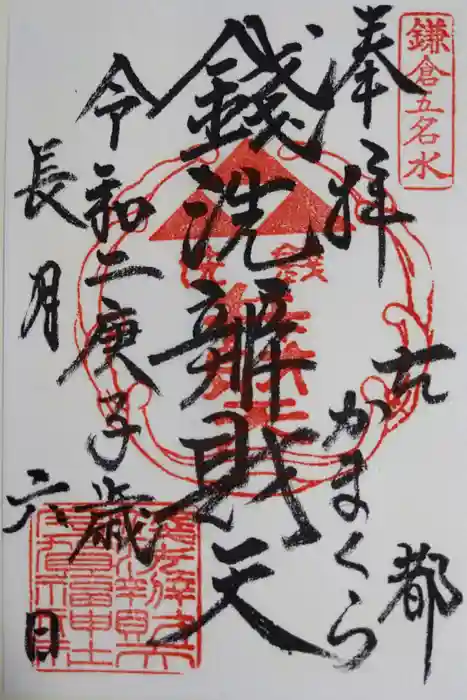 鎌倉五名水
奉拝
古都
かまくら
銭洗辨財天
令和二庚子歳
長月六日